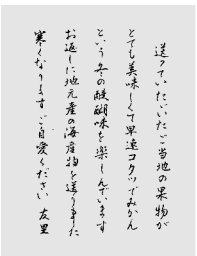 送っていただいたご当地の果物が
とても美味しくて早速コタツでみかん
という冬の醍醐味を楽しんでいます
お返しに地元産の海産物を送りました
寒くなりますご自愛ください 友里